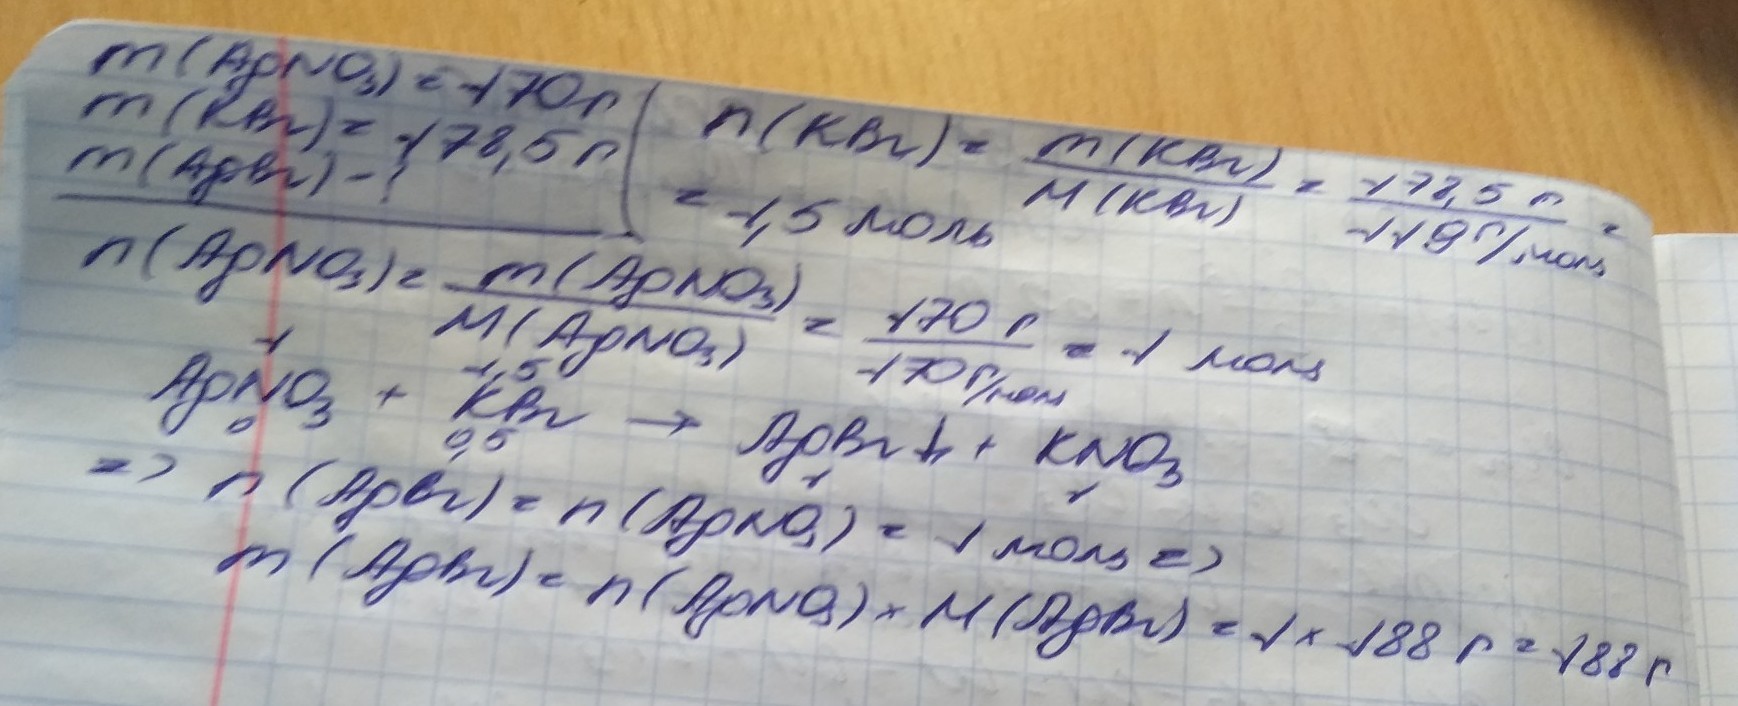 m(AgNO₃) = 170 г
m(KBr) = 178,5 г
m(AgBr) - ?
n(KBr) = m(KBr) / M(KBr) = 178,5 г / 119 г/моль =
= 1,5 моль
n(AgNO₃) = m(AgNO₃) / M(AgNO₃) = 170 г / 170 г/моль = 1 моль
1 1,5
AgNO₃ + KBr → AgBr↓ + KNO₃
0 0,5 1 1
=> n(AgBr) = n(AgNO₃) = 1 моль =>
m(AgBr) = n(AgNO₃) × M(AgBr) = 1 × 188 г = 188 г